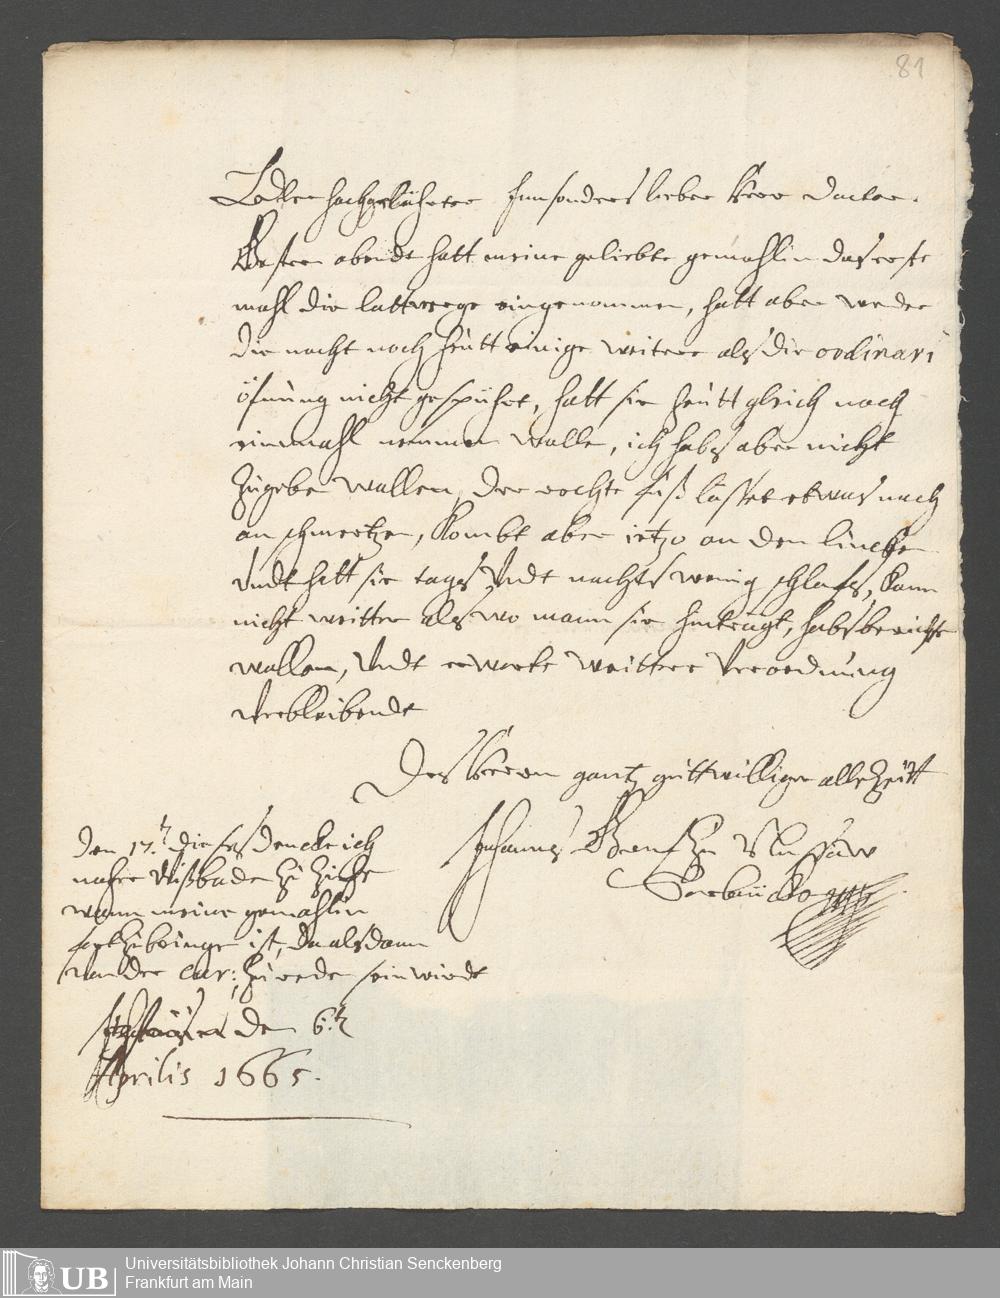 81
Edler hochgelährter Insonders lieber Herr Doctor.
Gestern abendt hatt meine geliebte gemahlin das erste
mahl die lattwerge eingenommen, hatt aber weder
die nacht noch heütt einige weitere als die ordinari
öfnung nicht gespühret, hatt sie heütt gleich noch
einmahl nemmen wolle, ich habs aber nicht
zugebe wollen, der rechte fuß lässet etwas nach
an schmertzen, kombt aber ietzo an den lincken
Undt hatt sie tags Undt nachts wenig schlafs, kann
nicht weitter als wo mann sie hintregt, habs berichte
wollen, Undt erwarte weittere Verordnung
Verbleibende
Des Herrn gantz guttwilliger allezeitt
Johannes Graff zu Nassaw
Sarbrücken
den 17.t dieses dencke ich
naher Wißbaden zu Ziehe
wann meine gemahlin
fortzubringe ist, da alsdann
von der Cur: zu rede sein wirdt
den 6.t
Aprilis 1665.
Universitätsbibliothek Johann Christian Senckenberg
Frankfurt am Main
UB